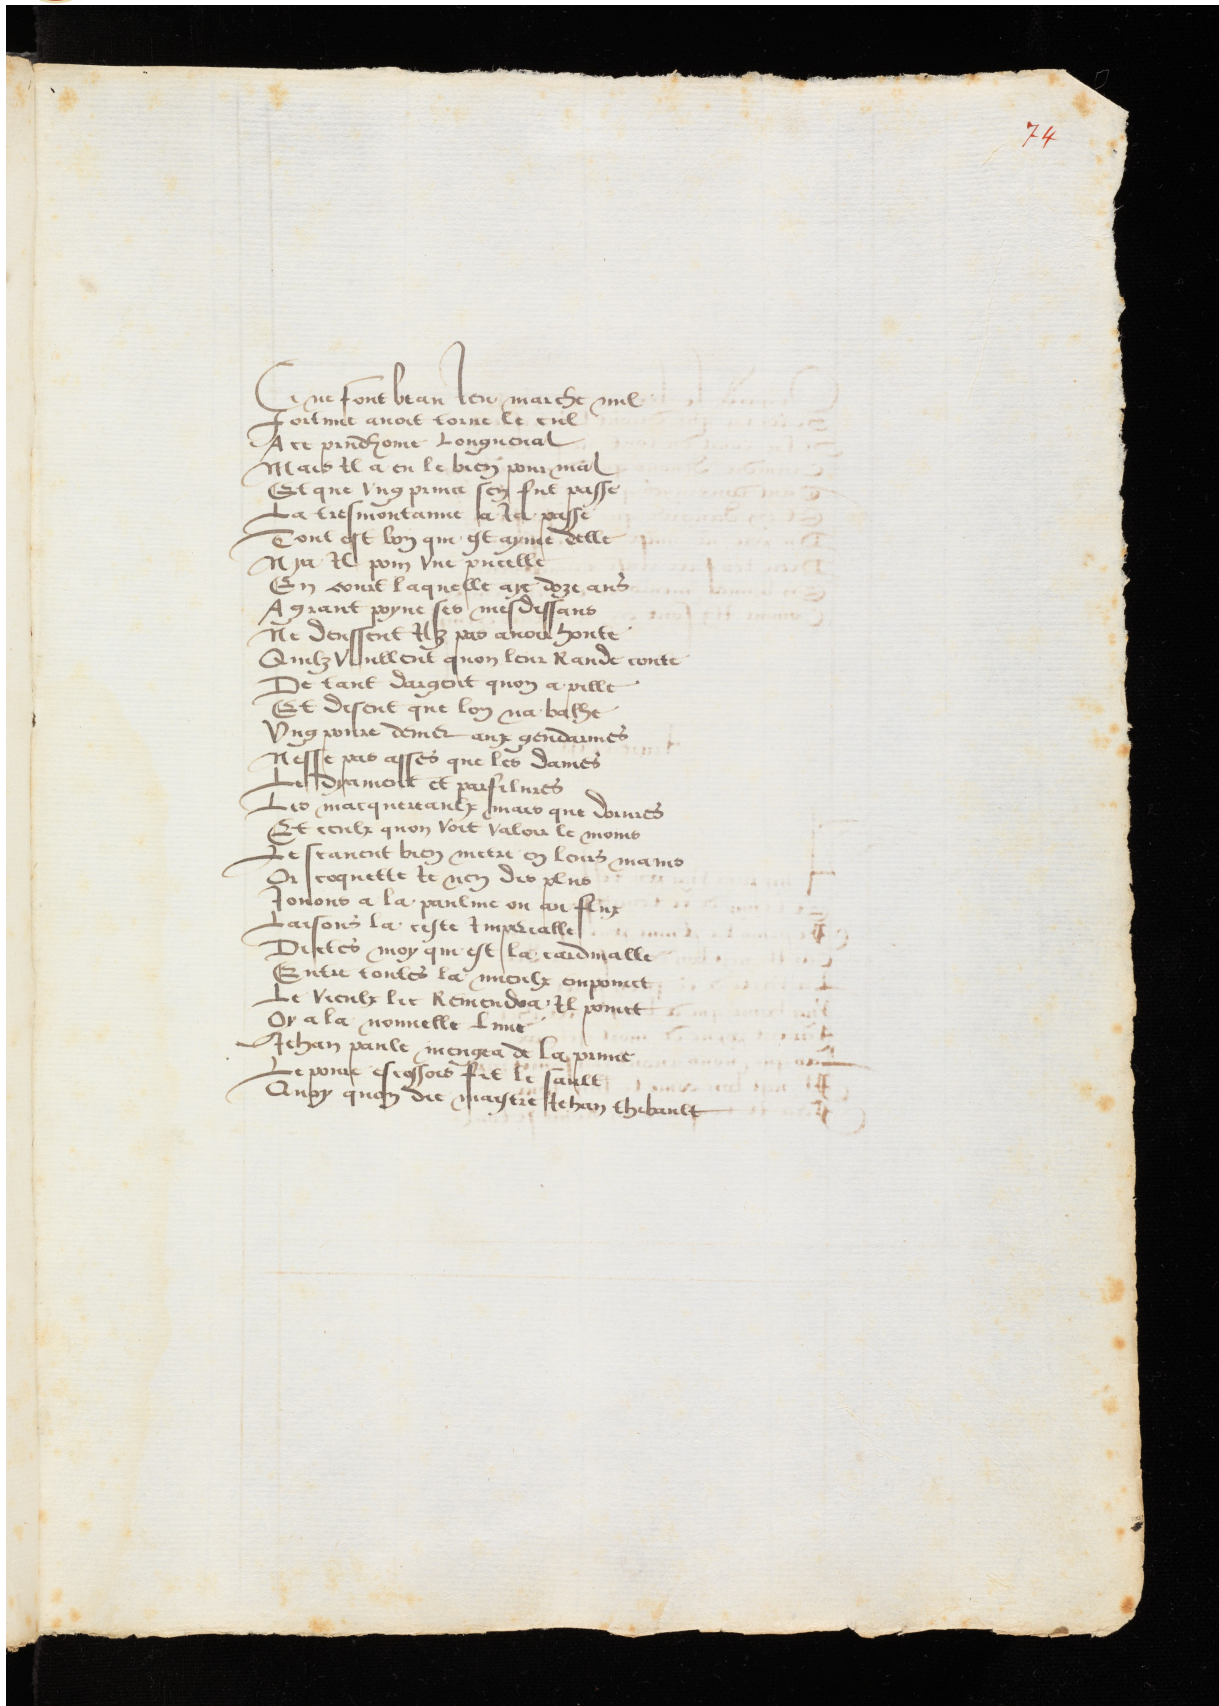 74
Ci ne font beau Jeu marche nul
Fortune avoit torne le cul
A ce prudhome Longueval
Mais Il a eu le bien pour mal
Et que Ung prince sen fut passe
La tresmontanne a Ja passe
Tout est bon qui gt ayme delle
N ya Il poin Une pucelle
En court laquelle aye doze ans
A grant poyne ses mesdissans
Ne deussent Ilz pas avoir honte
Quilz Veullent quon leur Rande conte
De tant dargent quon a pille
Et disent que lon na balhe
Ung povre denier aux gendarmes
Nesse pas asses que les dames
Le dyament et parfilures
Les macquereaulx mais que dorures
Et ceulx quon Voit Valoir le moins
Le scavent bien metre en leurs mains
Or coquette Je nen dis plus
Jouons a la paulme ou au flux
Laissons la ceste Imperialle
Dictes moy qui est la cardinalle
Entre toutes la mieulx en point
Le Vieulx lit Remendoa Il point
Oy a la nouvelle Lune
Jehan paule mengea de la prune
Le povre escossois fit le sault
Quoy quon die maistre Jehan thibault